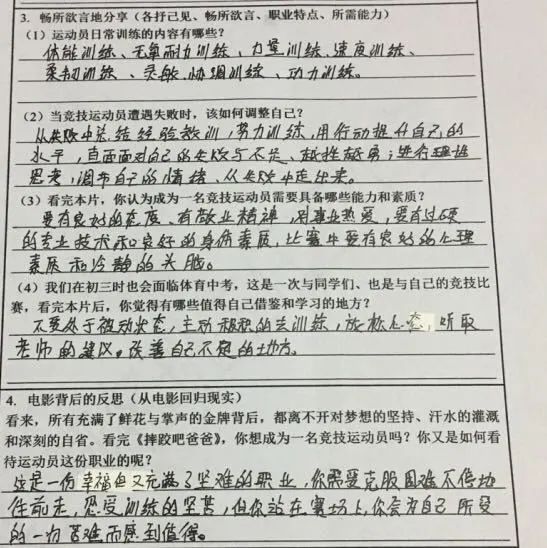 3. 畅所欲言地分享（各抒己见、畅所欲言、职业特点、所需能力）
（1）运动员日常训练的内容有哪些？
体能训练、无氧耐力训练、力量训练、速度训练、
柔韧训练、灵敏、协调训练、功力训练。
（2）当竞技运动员遭遇失败时，该如何调整自己？
从失败中总结经验教训，努力训练，用行动提升自己的
水平，直面面对自己的失败与不足、越挫越勇；进行理性
思考，调节自己的情绪、从失败中走出来。
（3）看完本片，你认为成为一名竞技运动员需要具备哪些能力和素质？
要有良好的态度、有敬业精神，对事业热爱，要有过硬
的专业技术和良好的身体素质，比赛中要有良好的心理
素质和冷静的头脑。
（4）我们在初三时也会面临体育中考，这是一次与同学们、也是与自己的竞技比
赛，看完本片后，你觉得有哪些值得自己借鉴和学习的地方？
不要处于被动状态，主动积极的去训练，放松心态，听取
老师的建议。改善自己不足的地方。
4. 电影背后的反思（从电影回归现实）
看来，所有充满了鲜花与掌声的金牌背后，都离不开对梦想的坚持、汗水的灌溉
和深刻的自省。看完《摔跤吧爸爸》，你想成为一名竞技运动员吗？你又是如何看
待运动员这份职业的呢？
这是一份幸福但又充满了坚难的职业，你需要克服困难不停地
往前走，忍受训练的坚苦，但你站在赛场上，你会为自己所受
的一切苦难而感到值得。